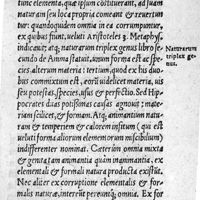 tunc elementa, quæ ipsum cōstituerāt, ad suam
naturam seu loca propria comeāt & reuertun
tur: quandoquidem omnia in ea corrumpuntur,
ex quibus fiunt, veluti Aristoteles 3. Metaphys.
indicauit; atq; naturam triplex genus libro se
cundo de Anima statuit, vnum forma est, ac spe
cies, alterum materia: tertium, quod ex his duo
bus commixtum est, eorū videlicet materia, ad
eis potestas, species, usus & perfectio. Sed Hip-
pocrates duas potissimas causas agnouit; mate-
riam scilicet, & formam. Atq; animantium natu-
ram & temperiem & calorem insitum (qui est
veluti forma aliorum elementorum miscibilium)
indifferenter nominat. Cæterùm omnia mixta
& genita, tam animantia quàm inanimantia, ex
elementali & formali natura producta existūt.
Nec aliter ex corruptione elementalis & for-
malis naturæ, intereūt pereuntq; omnia. Ex for
Naturarum
triplex ge-
nus.